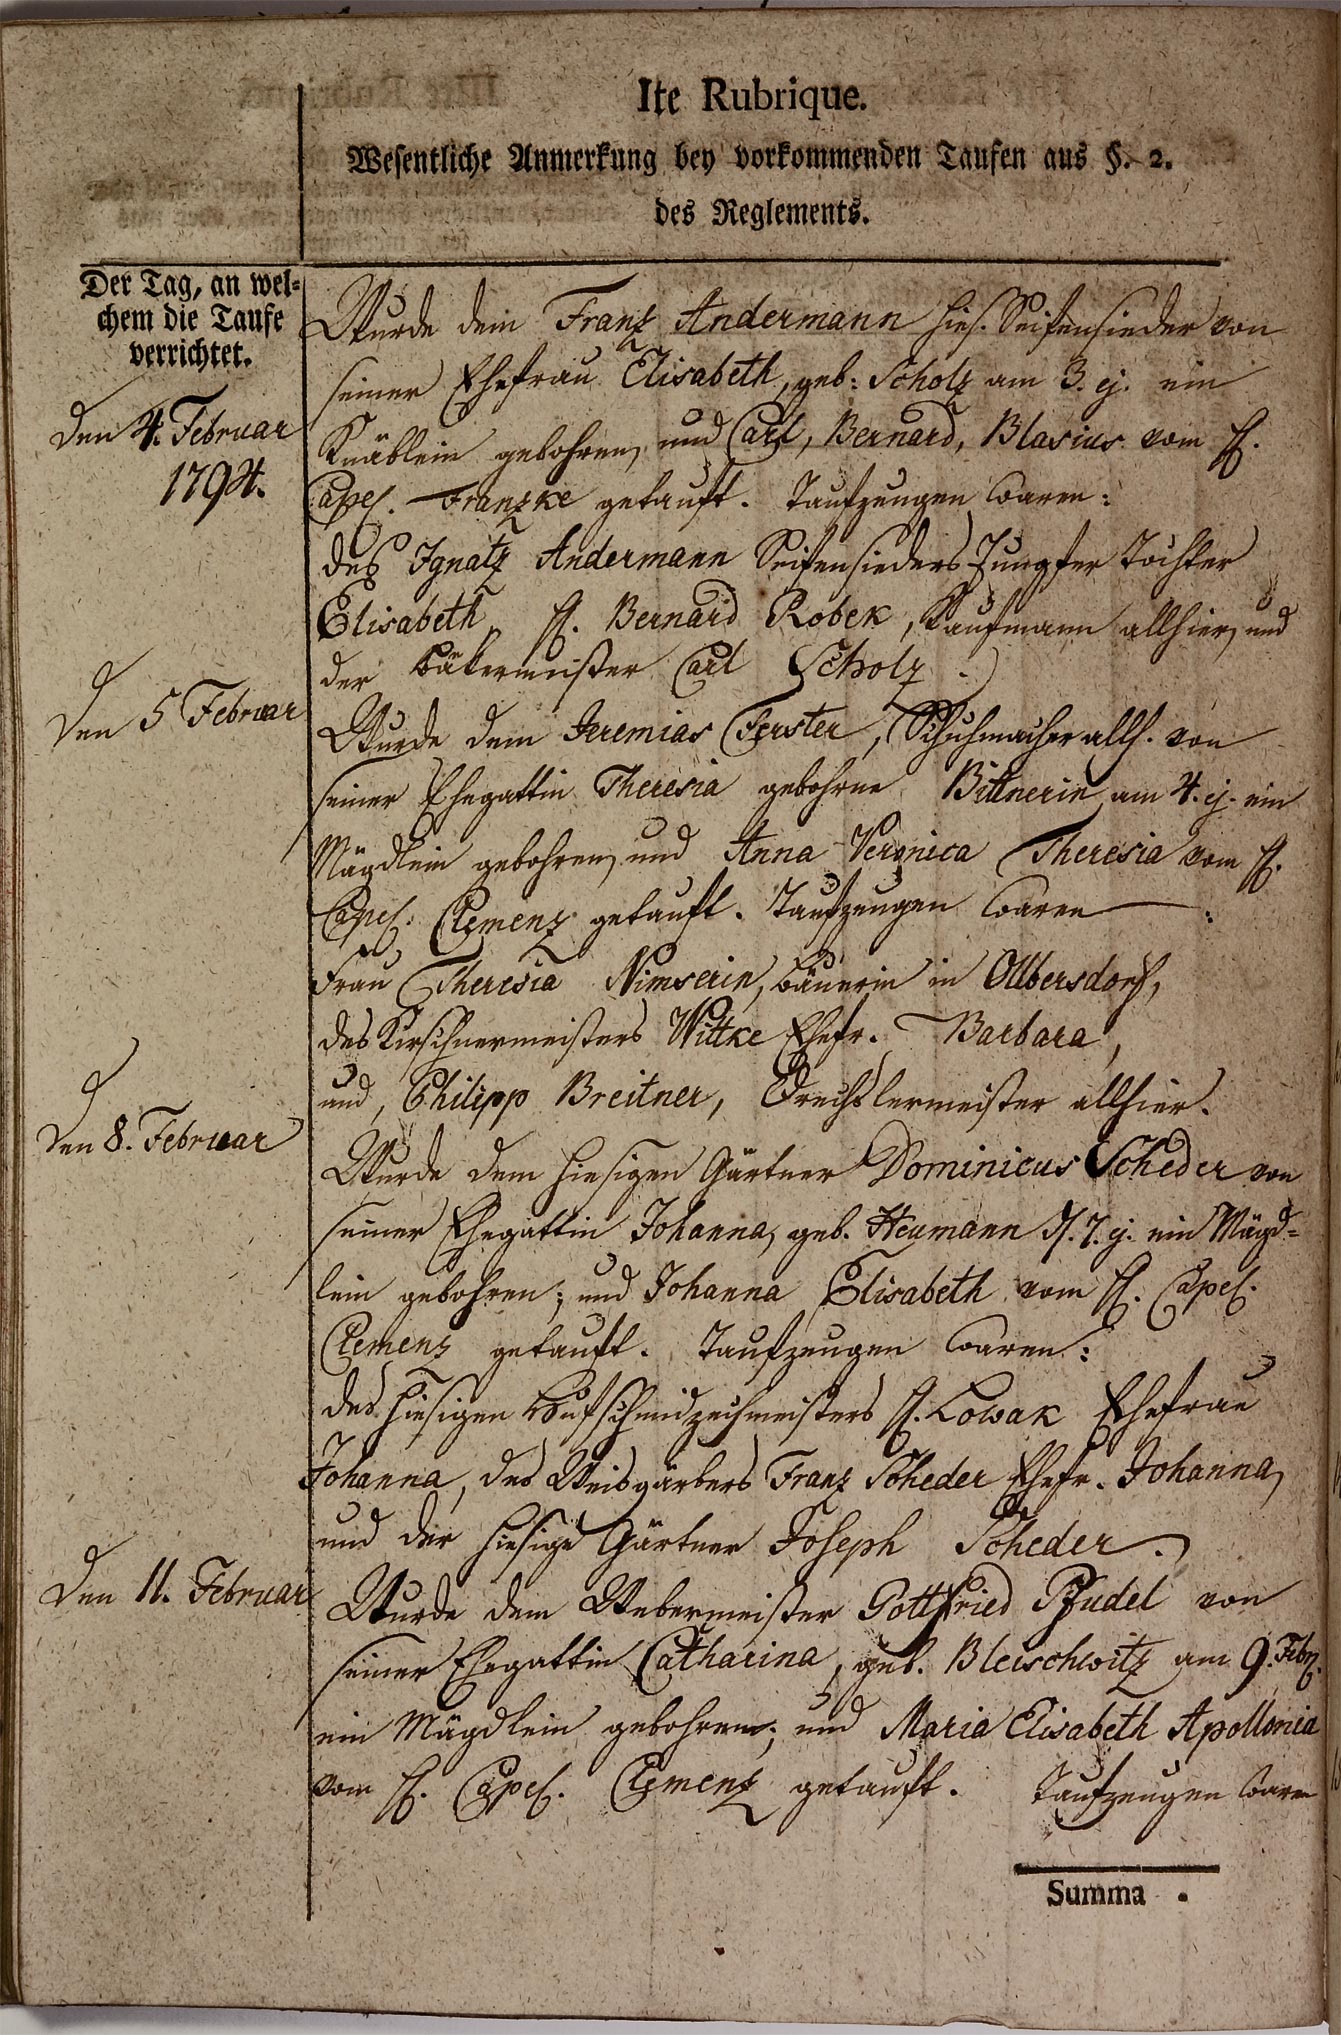 Ite Rubrique.
Wesentliche Anmerkung bey vorkommenden Taufen aus §. 2.
des Reglements.
Der Tag, an wel-
chem die Taufe
verrichtet.
Den 4. Februar
1794.
Wurde dem Franz Andermann hies. Seifensieder von
seiner Ehefrau Elisabeth, geb: Scholz am 3. ej. ein
Knäblein gebohren, und Carl, Bernard, Blasius vom H.
Capel. Franzke getauft. Taufzeugen waren:
des Ignatz Andermann Seifensieders Jungfer Tochter
Elisabeth, H. Bernard Robek, Kaufmann allhier, und
der Bäkermeister Carl Scholz.
Den 5 Februar
Wurde dem Jeremias Ferster, Schuhmacher allh. von
seiner Ehegattin Theresia gebohrne Bittnerin am 4. ej. ein
Mägdlein gebohren, und Anna Veronica Theresia vom H.
Capel. Clemenz getauft. Taufzeugen waren:
Frau Theresia Nimserin, Bäuerin in Olbersdorf,
des Kirschnermeisters Wittke Ehefr. Barbara,
und, Philipp Breitner, Drechslermeister allhier.
Den 8. Februar
Wurde dem hiesigen Gärtner Dominicus Scheder von
seiner Ehegattin Johanna, geb. Heumann d. 7. ej. ein Mägd-
lein gebohren; und Johanna Elisabeth vom H. Capel.
Clemens getauft. Taufzeugen waren:
des hiesigen Hufschmidzechmeisters H. Lowak Ehefrau
Johanna, des Weisgärbers Franz Scheder Ehefr. Johanna,
und der hiesige Gärtner Joseph Scheder.
Den 11. Februar
Wurde dem Webermeister Gottfried Pfudel von
seiner Ehegattin Catharina, geb. Bleischwitz am 9. Febr.
ein Mägdlein gebohren; und Maria Elisabeth Apollonia
vom H. Capel. Clemenz getauft. Taufzeugen waren
Summa .